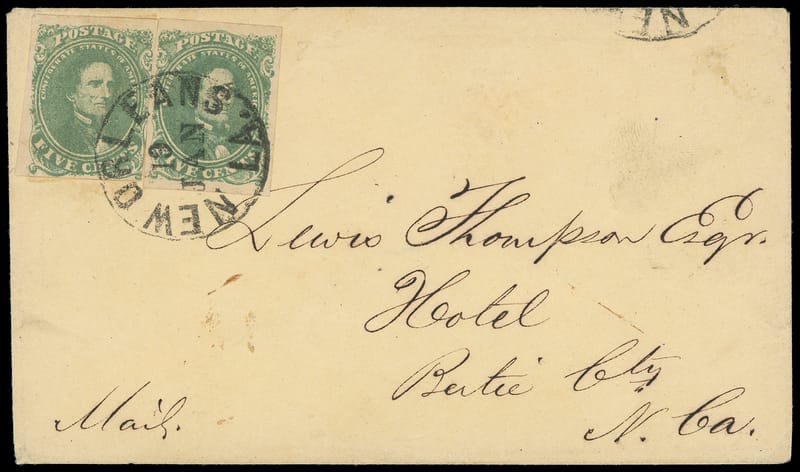 POSTAGE
CONFEDERATE STATES OF AMERICA
FIVE CENTS
POSTAGE
CONFEDERATE STATES OF AMERICA
FIVE CENTS
NEW ORLEANS LA.
JAN
NEW
Lewis Thompson Esqr.
Hotel
Bertie Cty
N. Ca.
Mail.